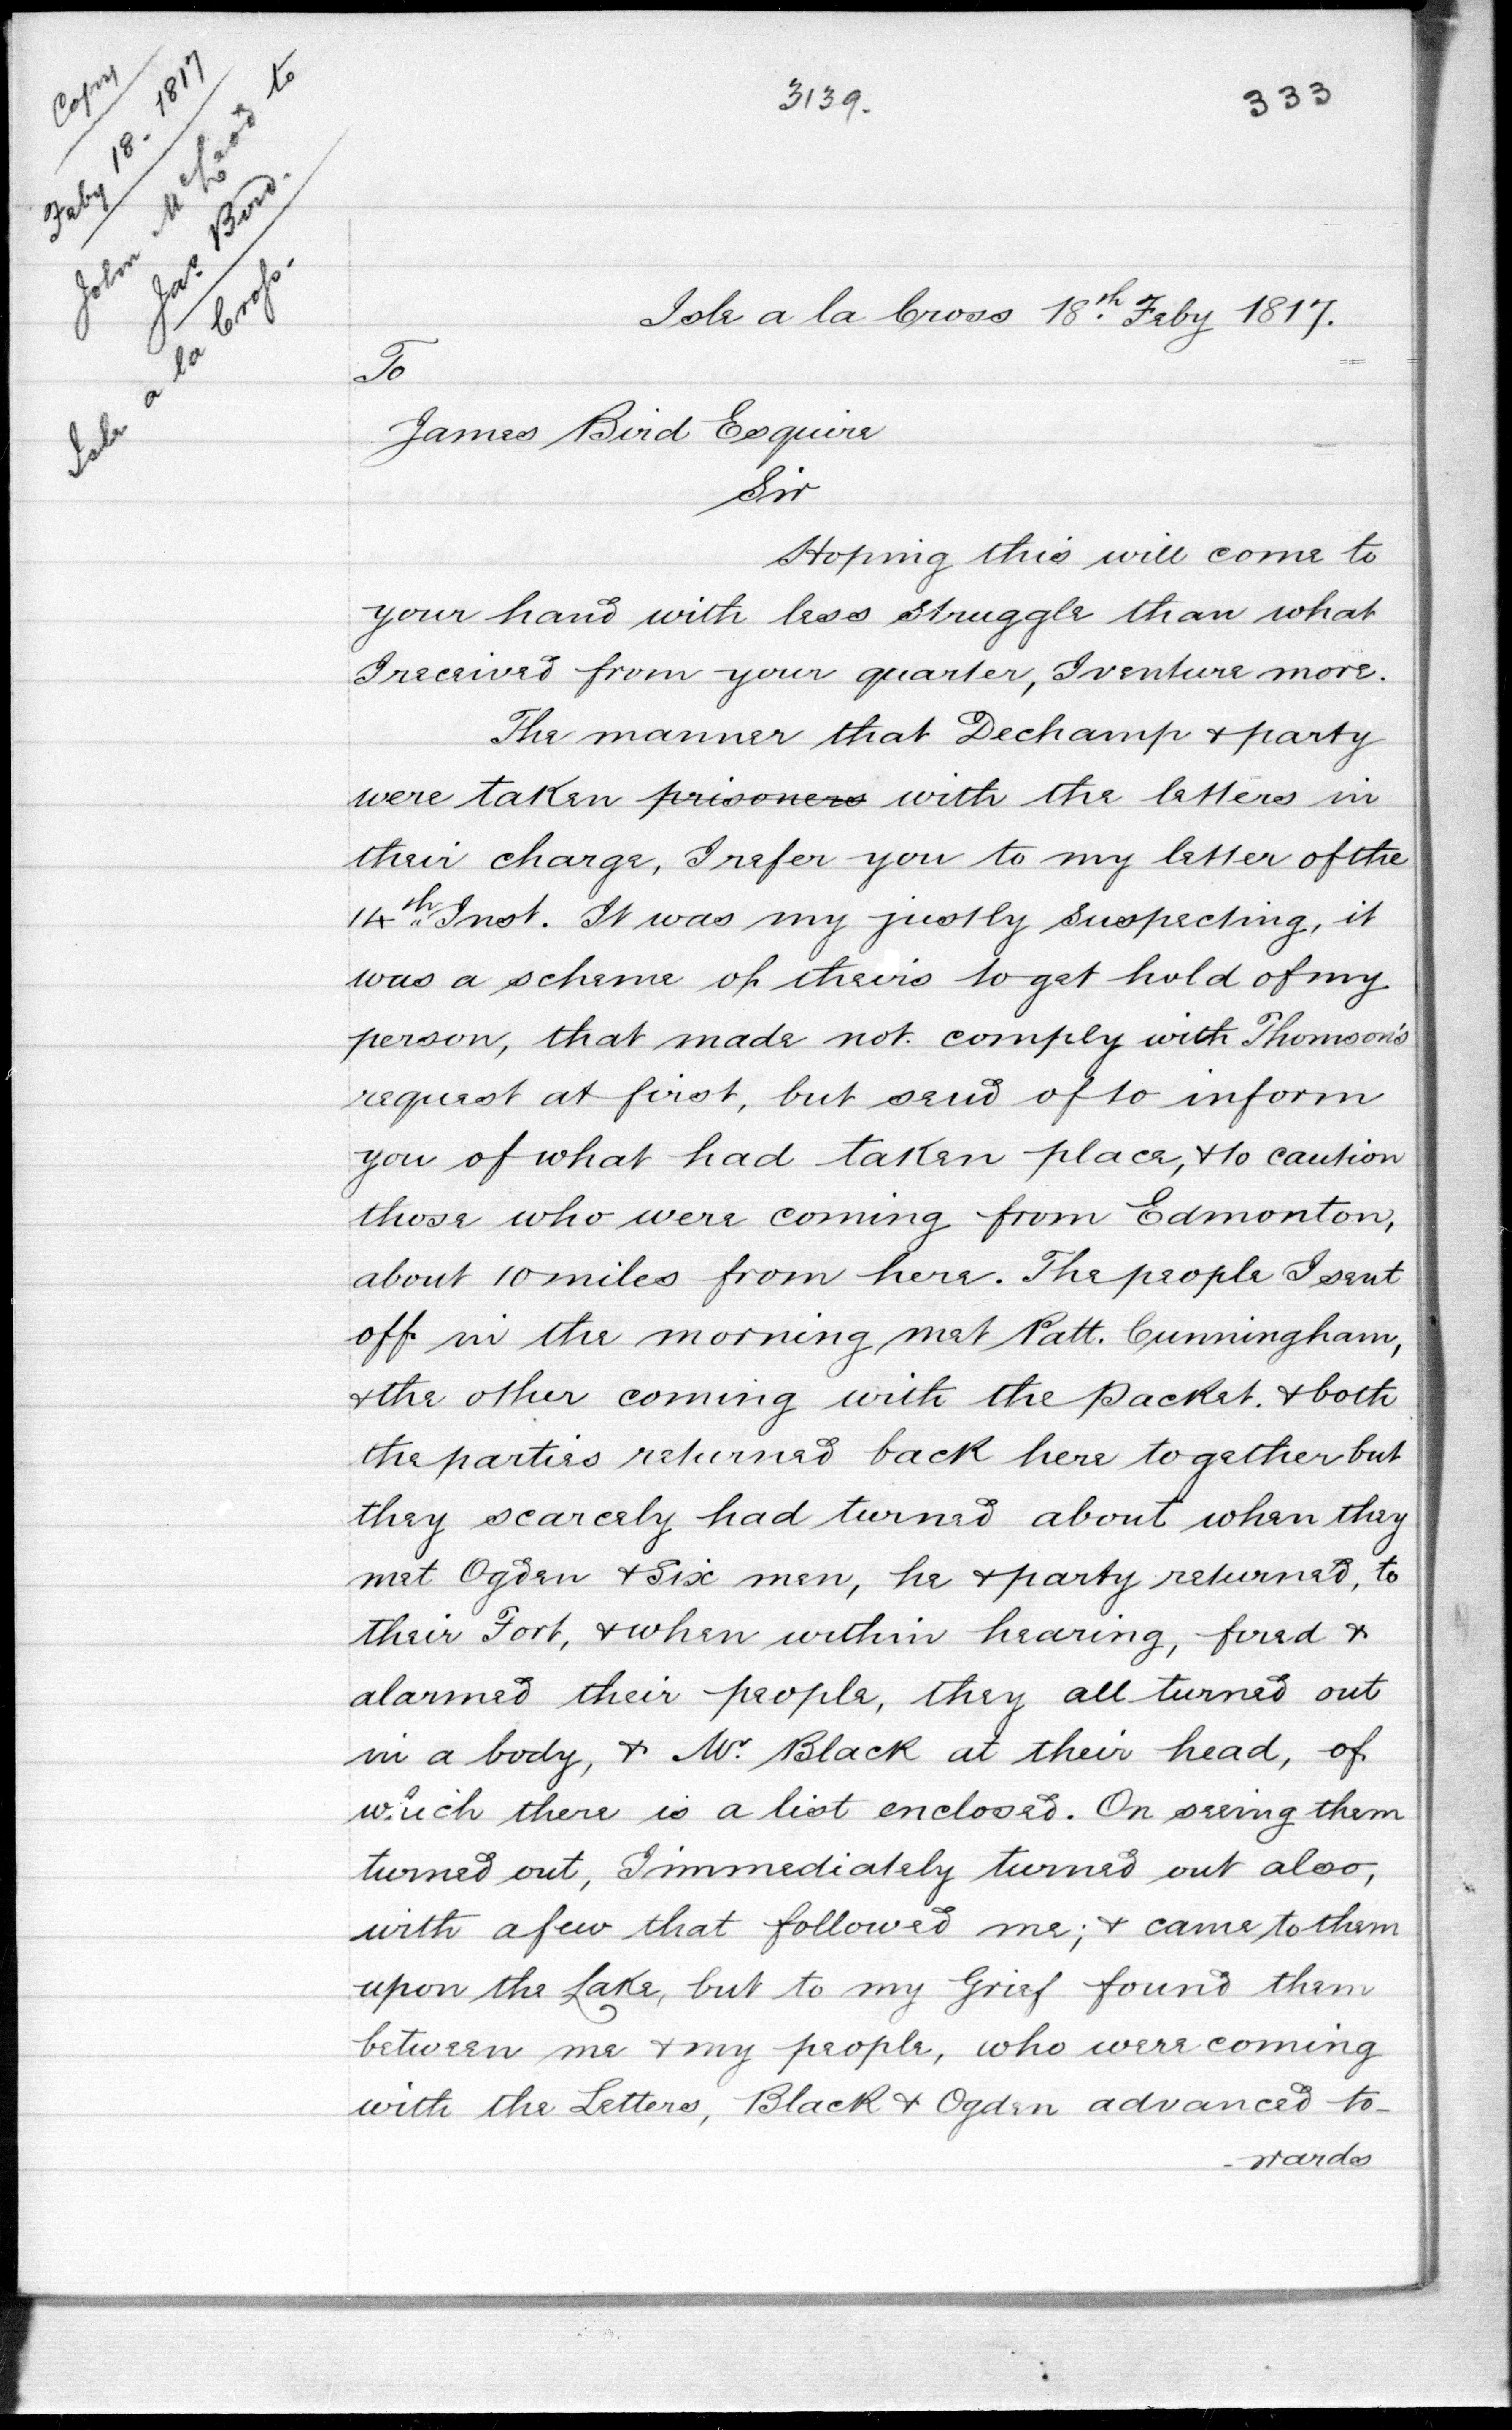 Copy
Feby 18. 1817
John McLeod to
Jas. Bird.
Isle a la Cross.
3139.
333
Isle a la Cross 18th. Feby 1817.
To
James Bird Esquire
Sir
Hoping this will come to
your hand with less struggle than what
I received from your quarter, I venture more.
The manner that Dechamp & party
were taken prisoners with the letters in
their charge, I refer you to my letter of the
14th Inst. It was my justly suspecting, it
was a scheme of theirs to get hold of my
person, that made not comply with Thomson's
request at first, but send of to inform
you of what had taken place, & to caution
those who were coming from Edmonton,
about 10 miles from here. The people I sent
off in the morning met Patt. Cunningham,
& the other coming with the packet. & both
the parties returned back here together but
they scarcely had turned about when they
met Ogden & Six men, he & party returned, to
their Fort, & when within hearing, fired &
alarmed their people, they all turned out
in a body, & Mr. Black at their head, of
which there is a list enclosed. On seeing them
turned out, I immediately turned out also,
with a few that followed me; & came to them
upon the Lake, but to my Grief found them
between me & my people, who were coming
with the Letters, Black & Ogden advanced to-
-wards